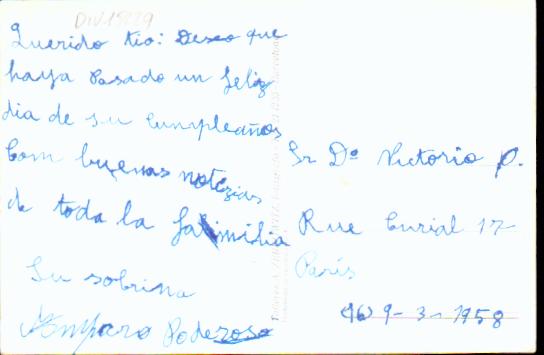 DIV18229
Querido tio: Deseo que
haya Pasado un feliz
dia de su Cumpleaños
Com buenas notezias
de toda la familia
Su sobrina
Amparo Poderoso
Sr Dº Victorio P.
Rue Curial 17
París
9-3-1958